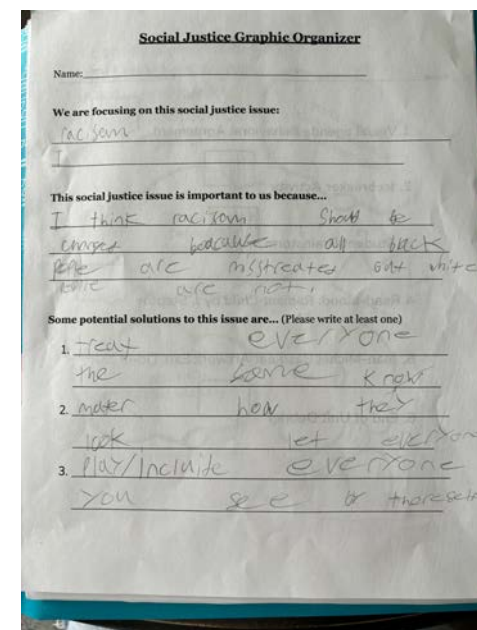 Social Justice Graphic Organizer
Name:
We are focusing on this social justice issue:
racisam
I
This social justice issue is important to us because...
I think racisam Should be
changed beacause all back
are misstreated but white
are not.
Some potential solutions to this issue are... (Please write at least one)
1. Treat everyone
the same know
2. mater how they
look let everyon
3. Play/incluide everyone
you see by thereself